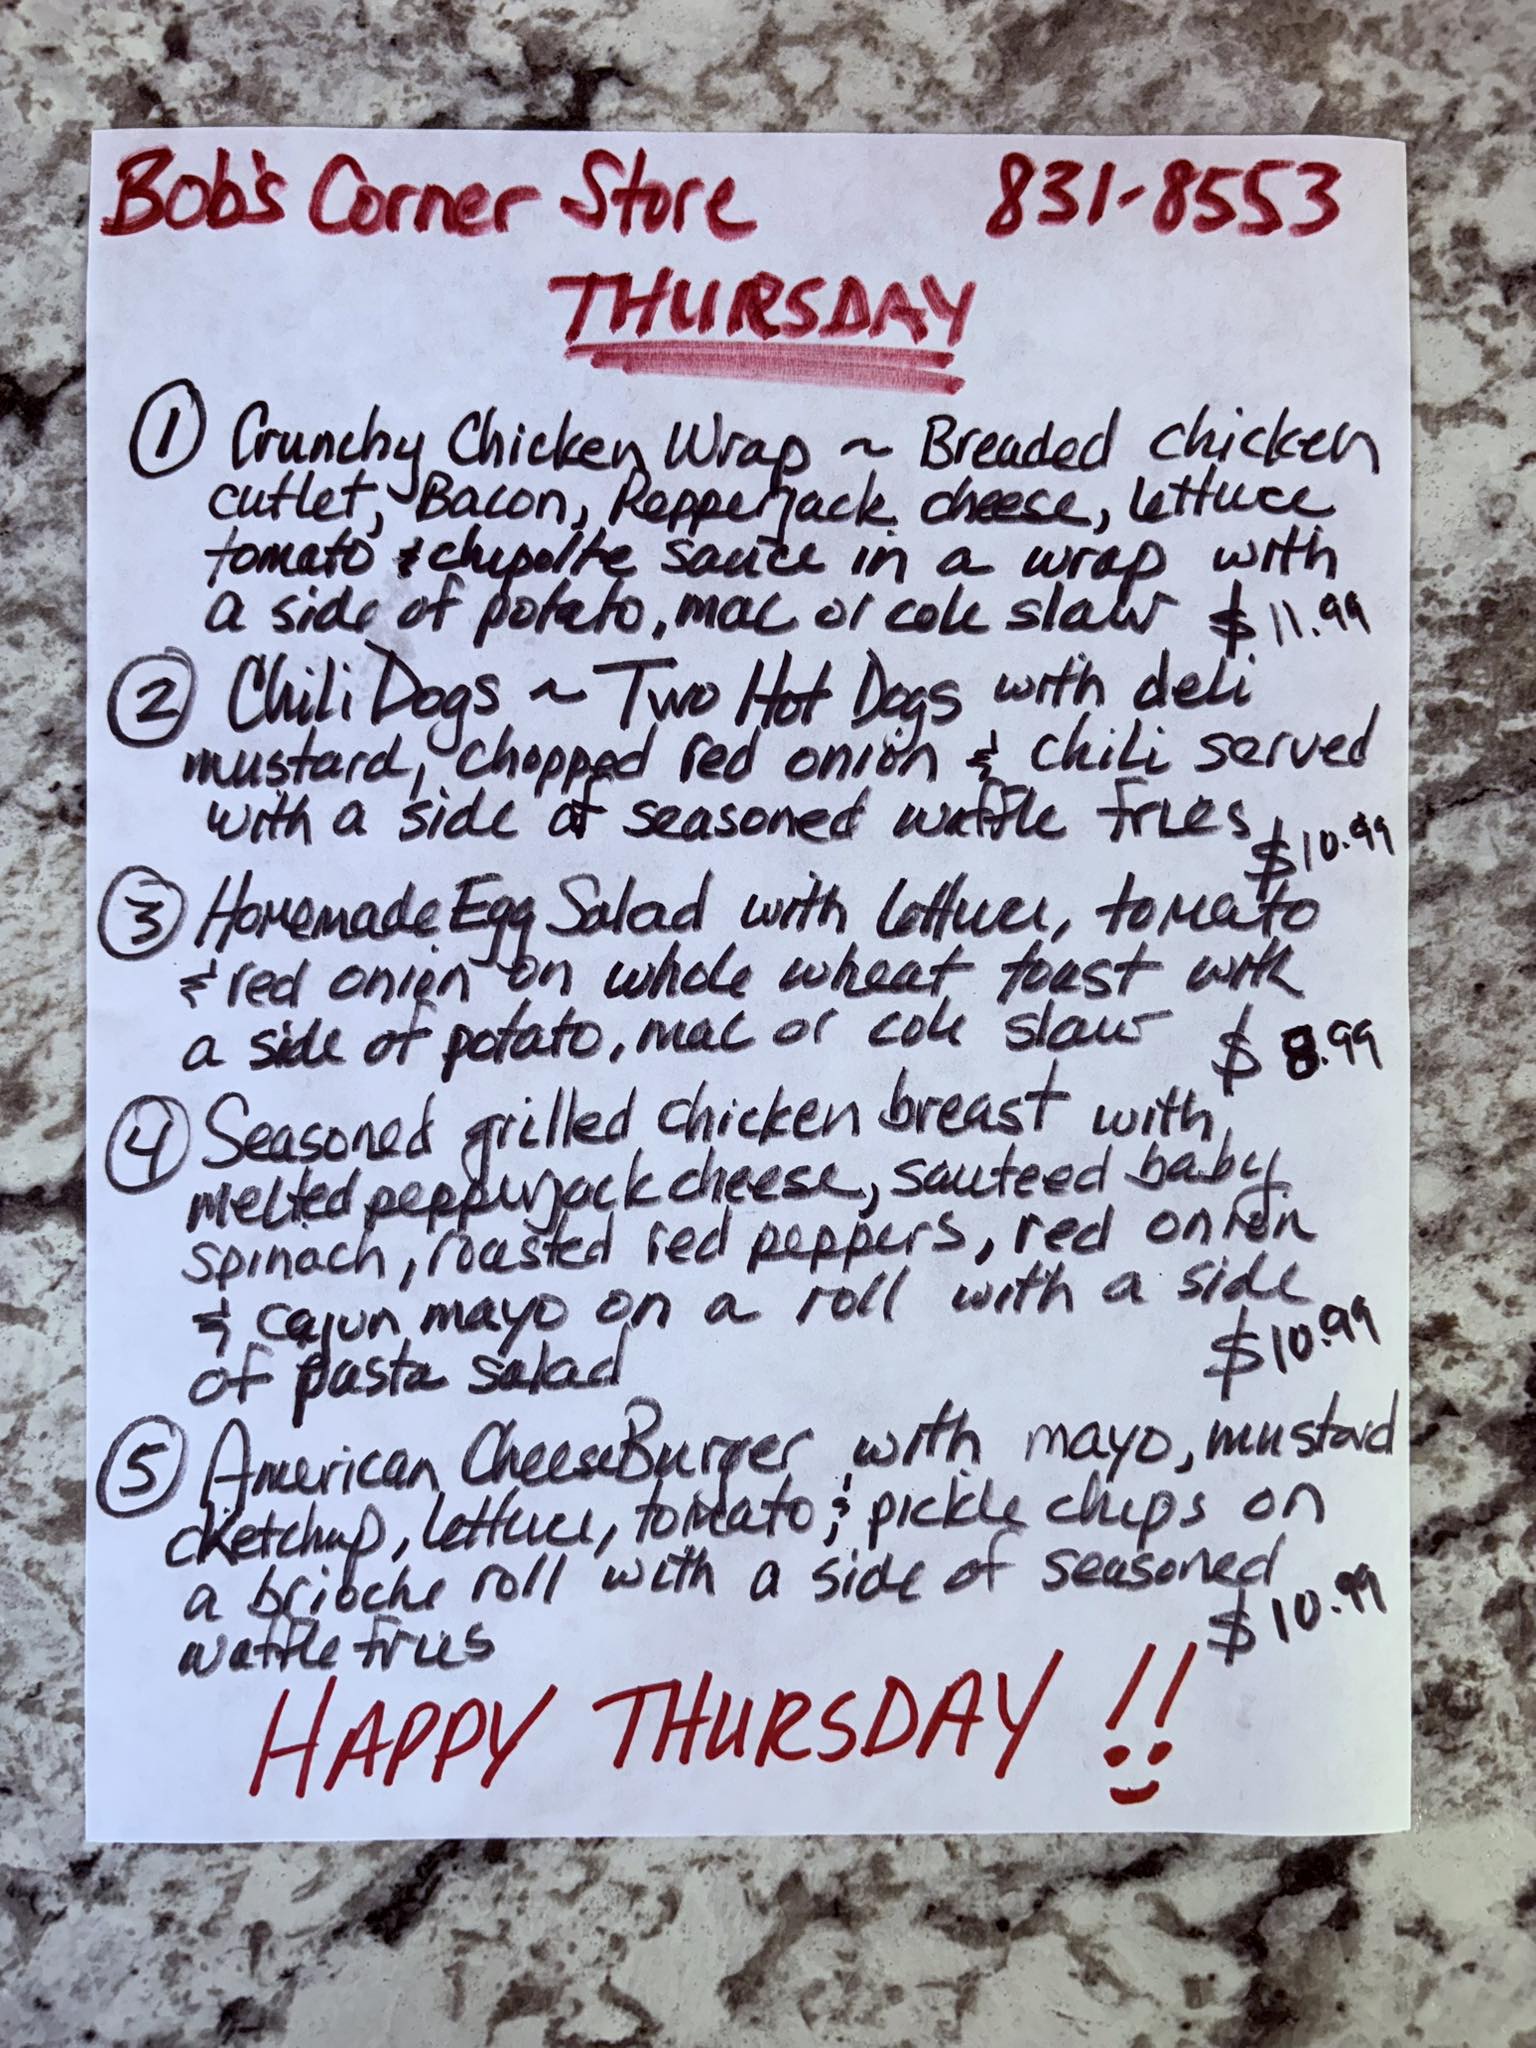 Bob's Corner Store 831-8553
THURSDAY
1 Crunchy Chicken Wrap ~ Breaded chicken
cutlet, Bacon, Pepperjack cheese, lettuce
tomato & chipolte sauce in a wrap with
a side of potato, mac or cole slaw $11.99
2 Chili Dogs ~ Two Hot Dogs with deli
mustard, chopped red onion & chili served
with a side of seasoned waffle fries $10.99
3 Homemade Egg Salad with lettuce, tomato
& red onion on whole wheat toast with
a side of potato, mac or cole slaw $8.99
4 Seasoned grilled chicken breast with
melted pepperjack cheese, sauteed baby
spinach, roasted red peppers, red onion
& cajun mayo on a roll with a side
of pasta salad $10.99
5 American CheeseBurger with mayo, mustard
ketchup, lettuce, tomato, & pickle chips on
a brioche roll with a side of seasoned
waffle fries $10.99
HAPPY THURSDAY !!